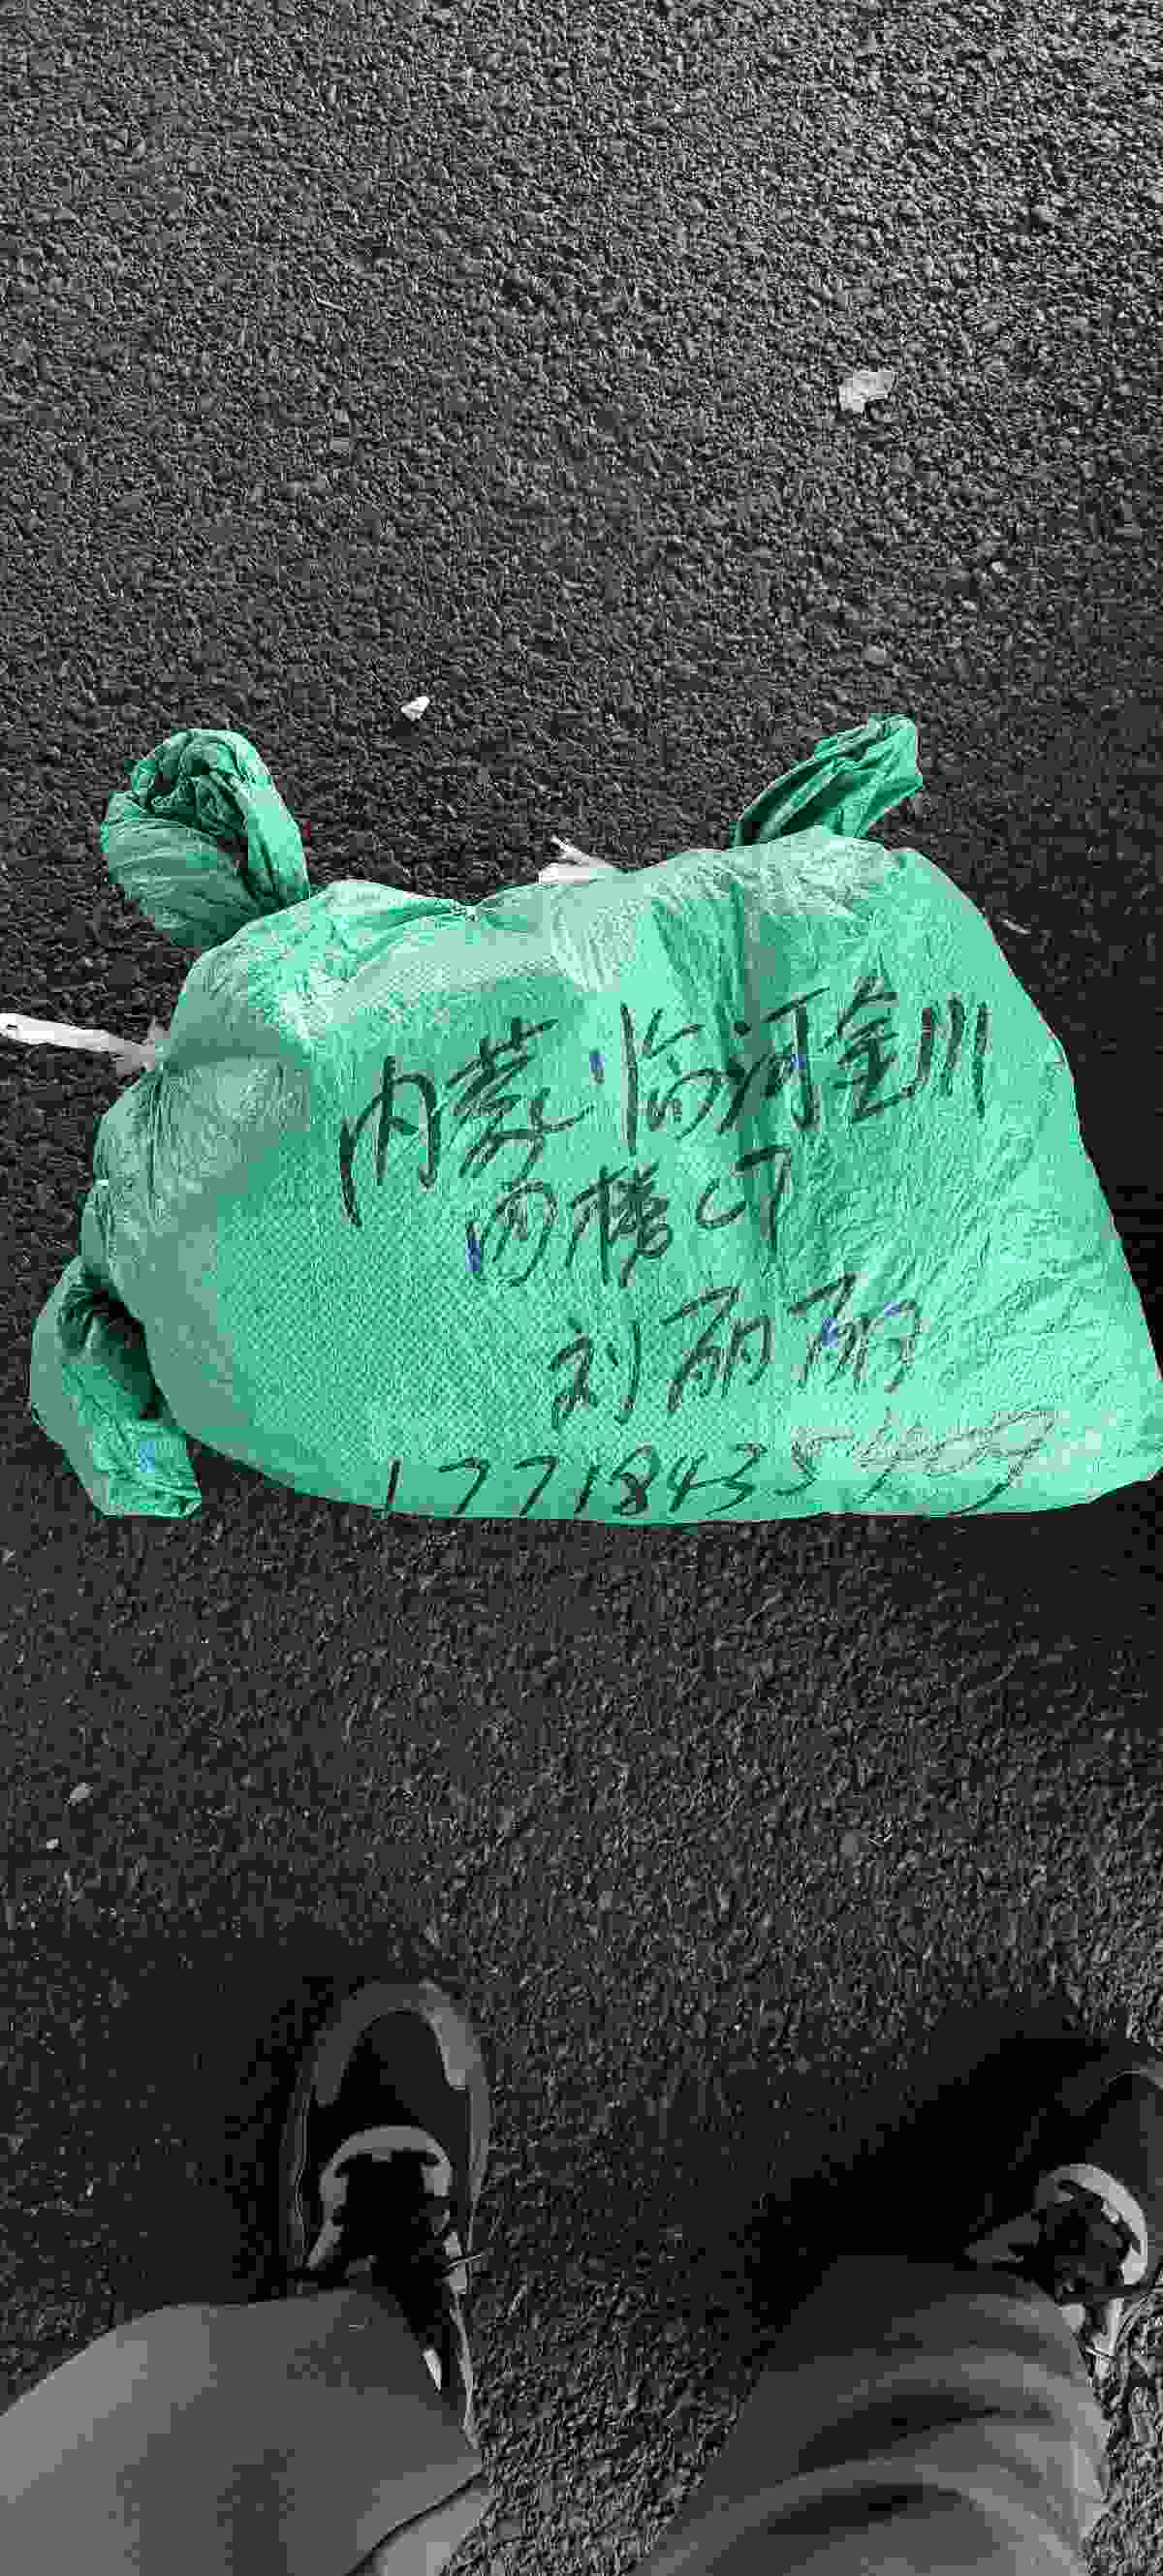 内蒙临河金川
四楼CT
刘丽丽
17718435